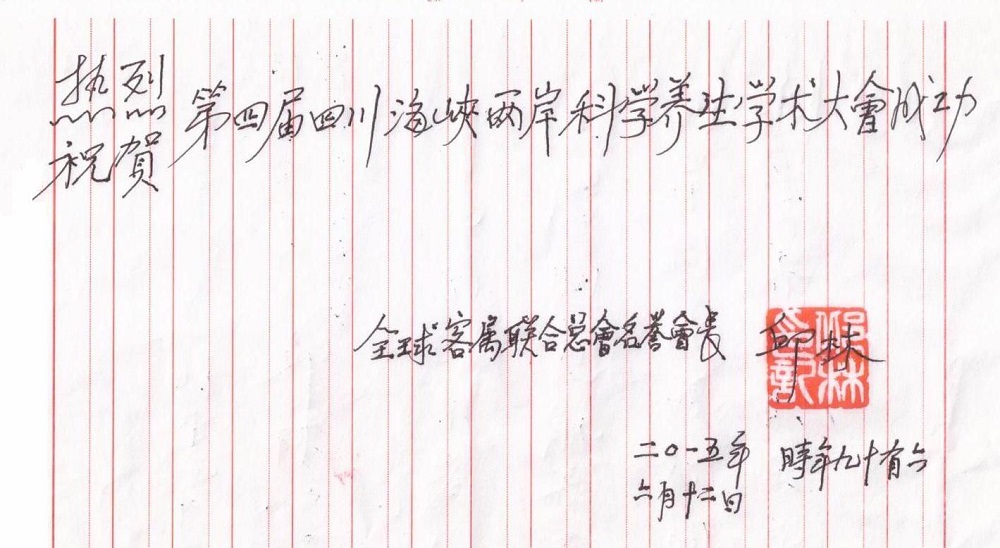 热烈
祝賀
第四届四川海峡两岸科学养生学术大會成功
全球客属联合总會名誉會长 邱林
二〇一五年
六月十二日
時年九十有六